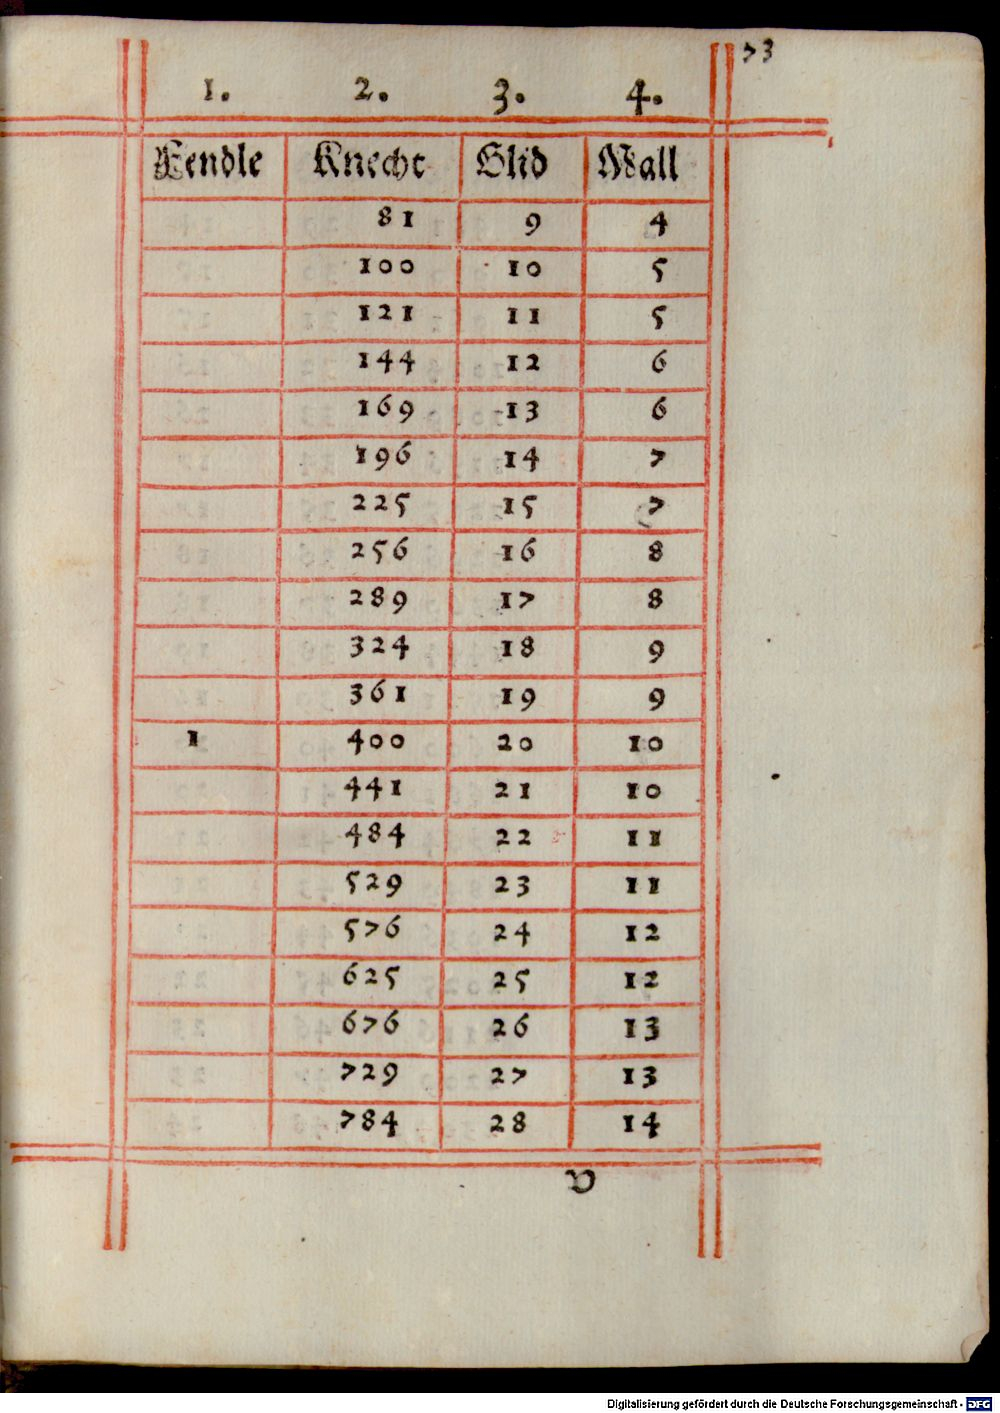 73
1. 2. 3. 4.
Fendle Knecht Glid Wall
81 9 4
100 10 5
121 11 5
144 12 6
169 13 6
196 14 7
225 15 7
256 16 8
289 17 8
324 18 9
361 19 9
1 400 20 10
441 21 10
484 22 11
529 23 11
576 24 12
625 25 12
676 26 13
729 27 13
784 28 14
Digitalisierung gefördert durch die Deutsche Forschungsgemeinschaft - DFG